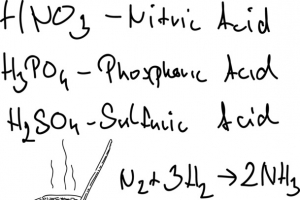 HNO3 - Nitric Acid
H3PO4 - Phosphoric Acid
H2SO4 - Sulfuric Acid
N2 + 3H2 → 2NH3